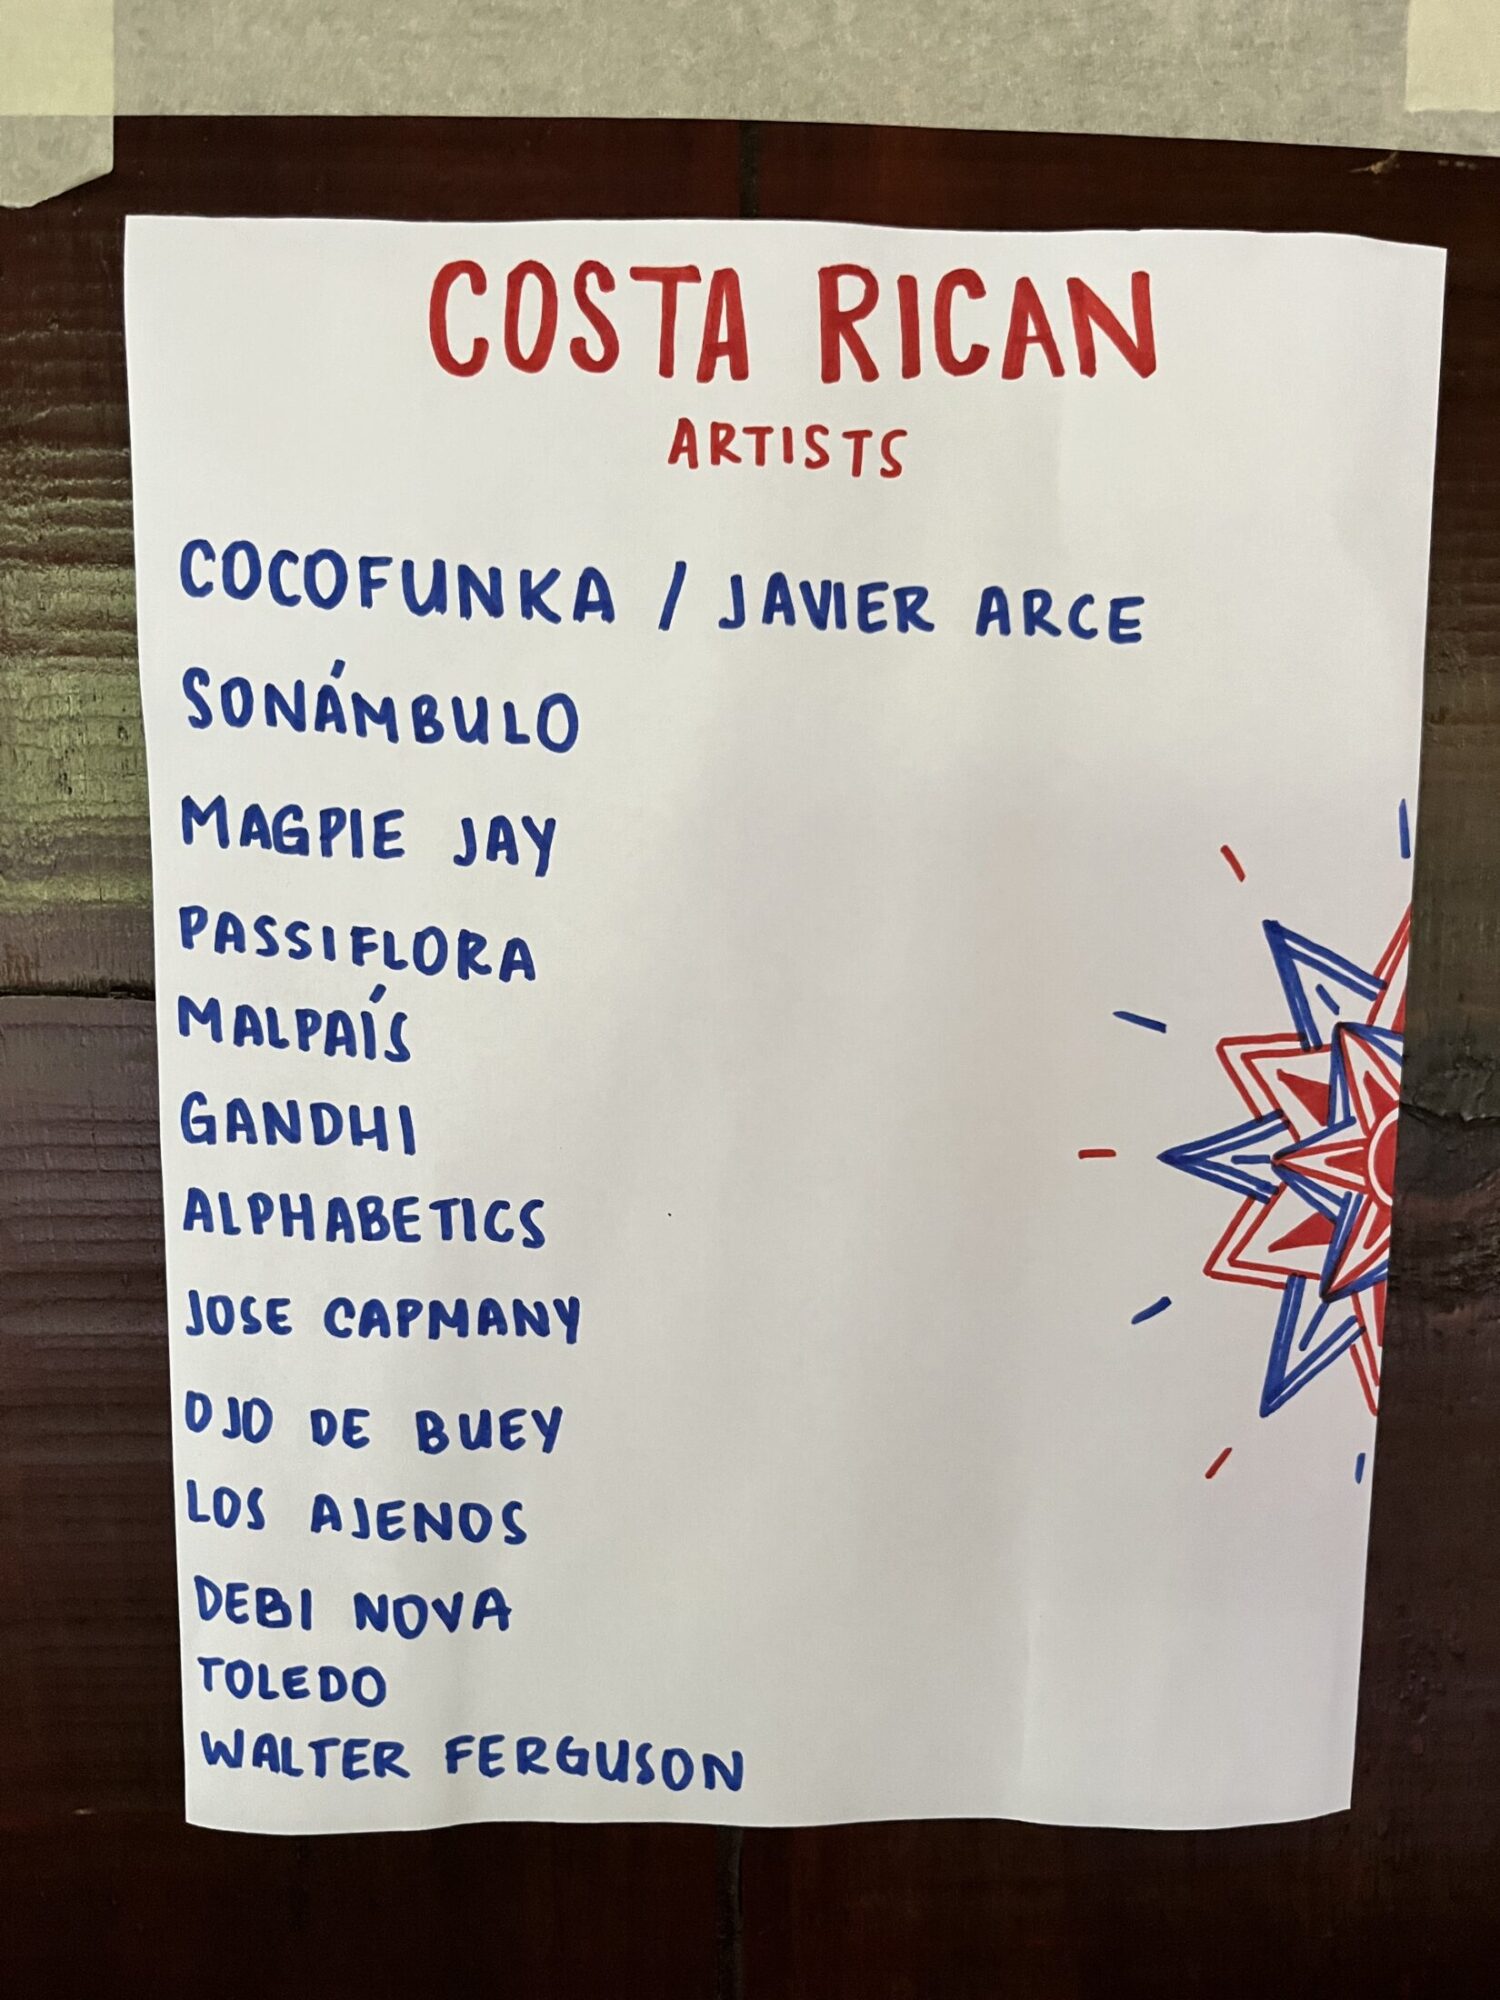 COSTA RICAN
ARTISTS
COCOFUNKA / JAVIER ARCE
SONÁMBULO
MAGPIE JAY
PASSIFLORA
MALPAÍS
GANDHI
ALPHABETICS
JOSE CAPMANY
OJO DE BUEY
LOS AJENOS
DEBI NOVA
TOLEDO
WALTER FERGUSON